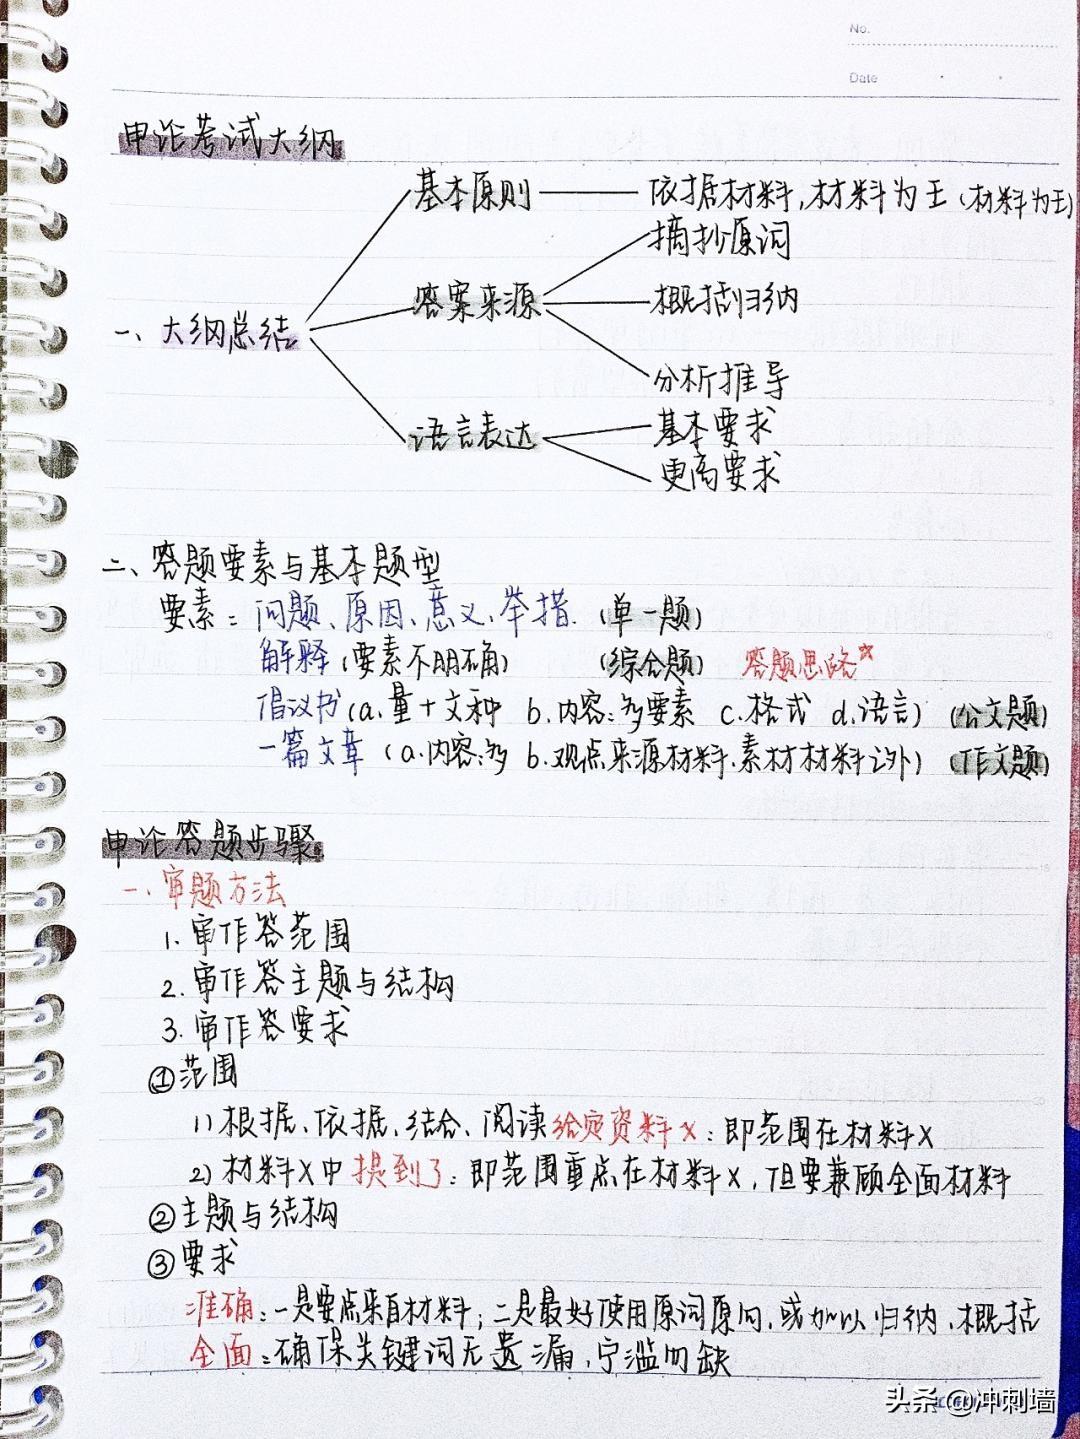 No.
Date
申论考试大纲
基本原则 依据材料,材料为王(材料为王)
摘抄原词
答案来源 概括归纳
一、大纲总结
分析推导
语言表达 基本要求
更高要求
二、答题要素与基本题型
要素:问题、原因、意义、举措.(单一题)
解释(要素不明确) (综合题) 答题思路☆
倡议书(a.量+文种 b.内容:多要素 c.格式 d.语言)(公文题)
一篇文章(a.内容:多 b.观点来源材料.素材材料之外)(作文题)
申论答题步骤
一、审题方法
1.审作答范围
2.审作答主题与结构
3.审作答要求
①范围
1)根据、依据、结合、阅读给定资料X:即范围在材料X
2)材料X中提到了:即范围重点在材料X,但要兼顾全面材料
②主题与结构
③要求
准确:一是要点来自材料;二是最好使用原词原句,或加以归纳、概括
全面:确保关键词无遗漏,宁滥勿缺
头条@冲刺墙